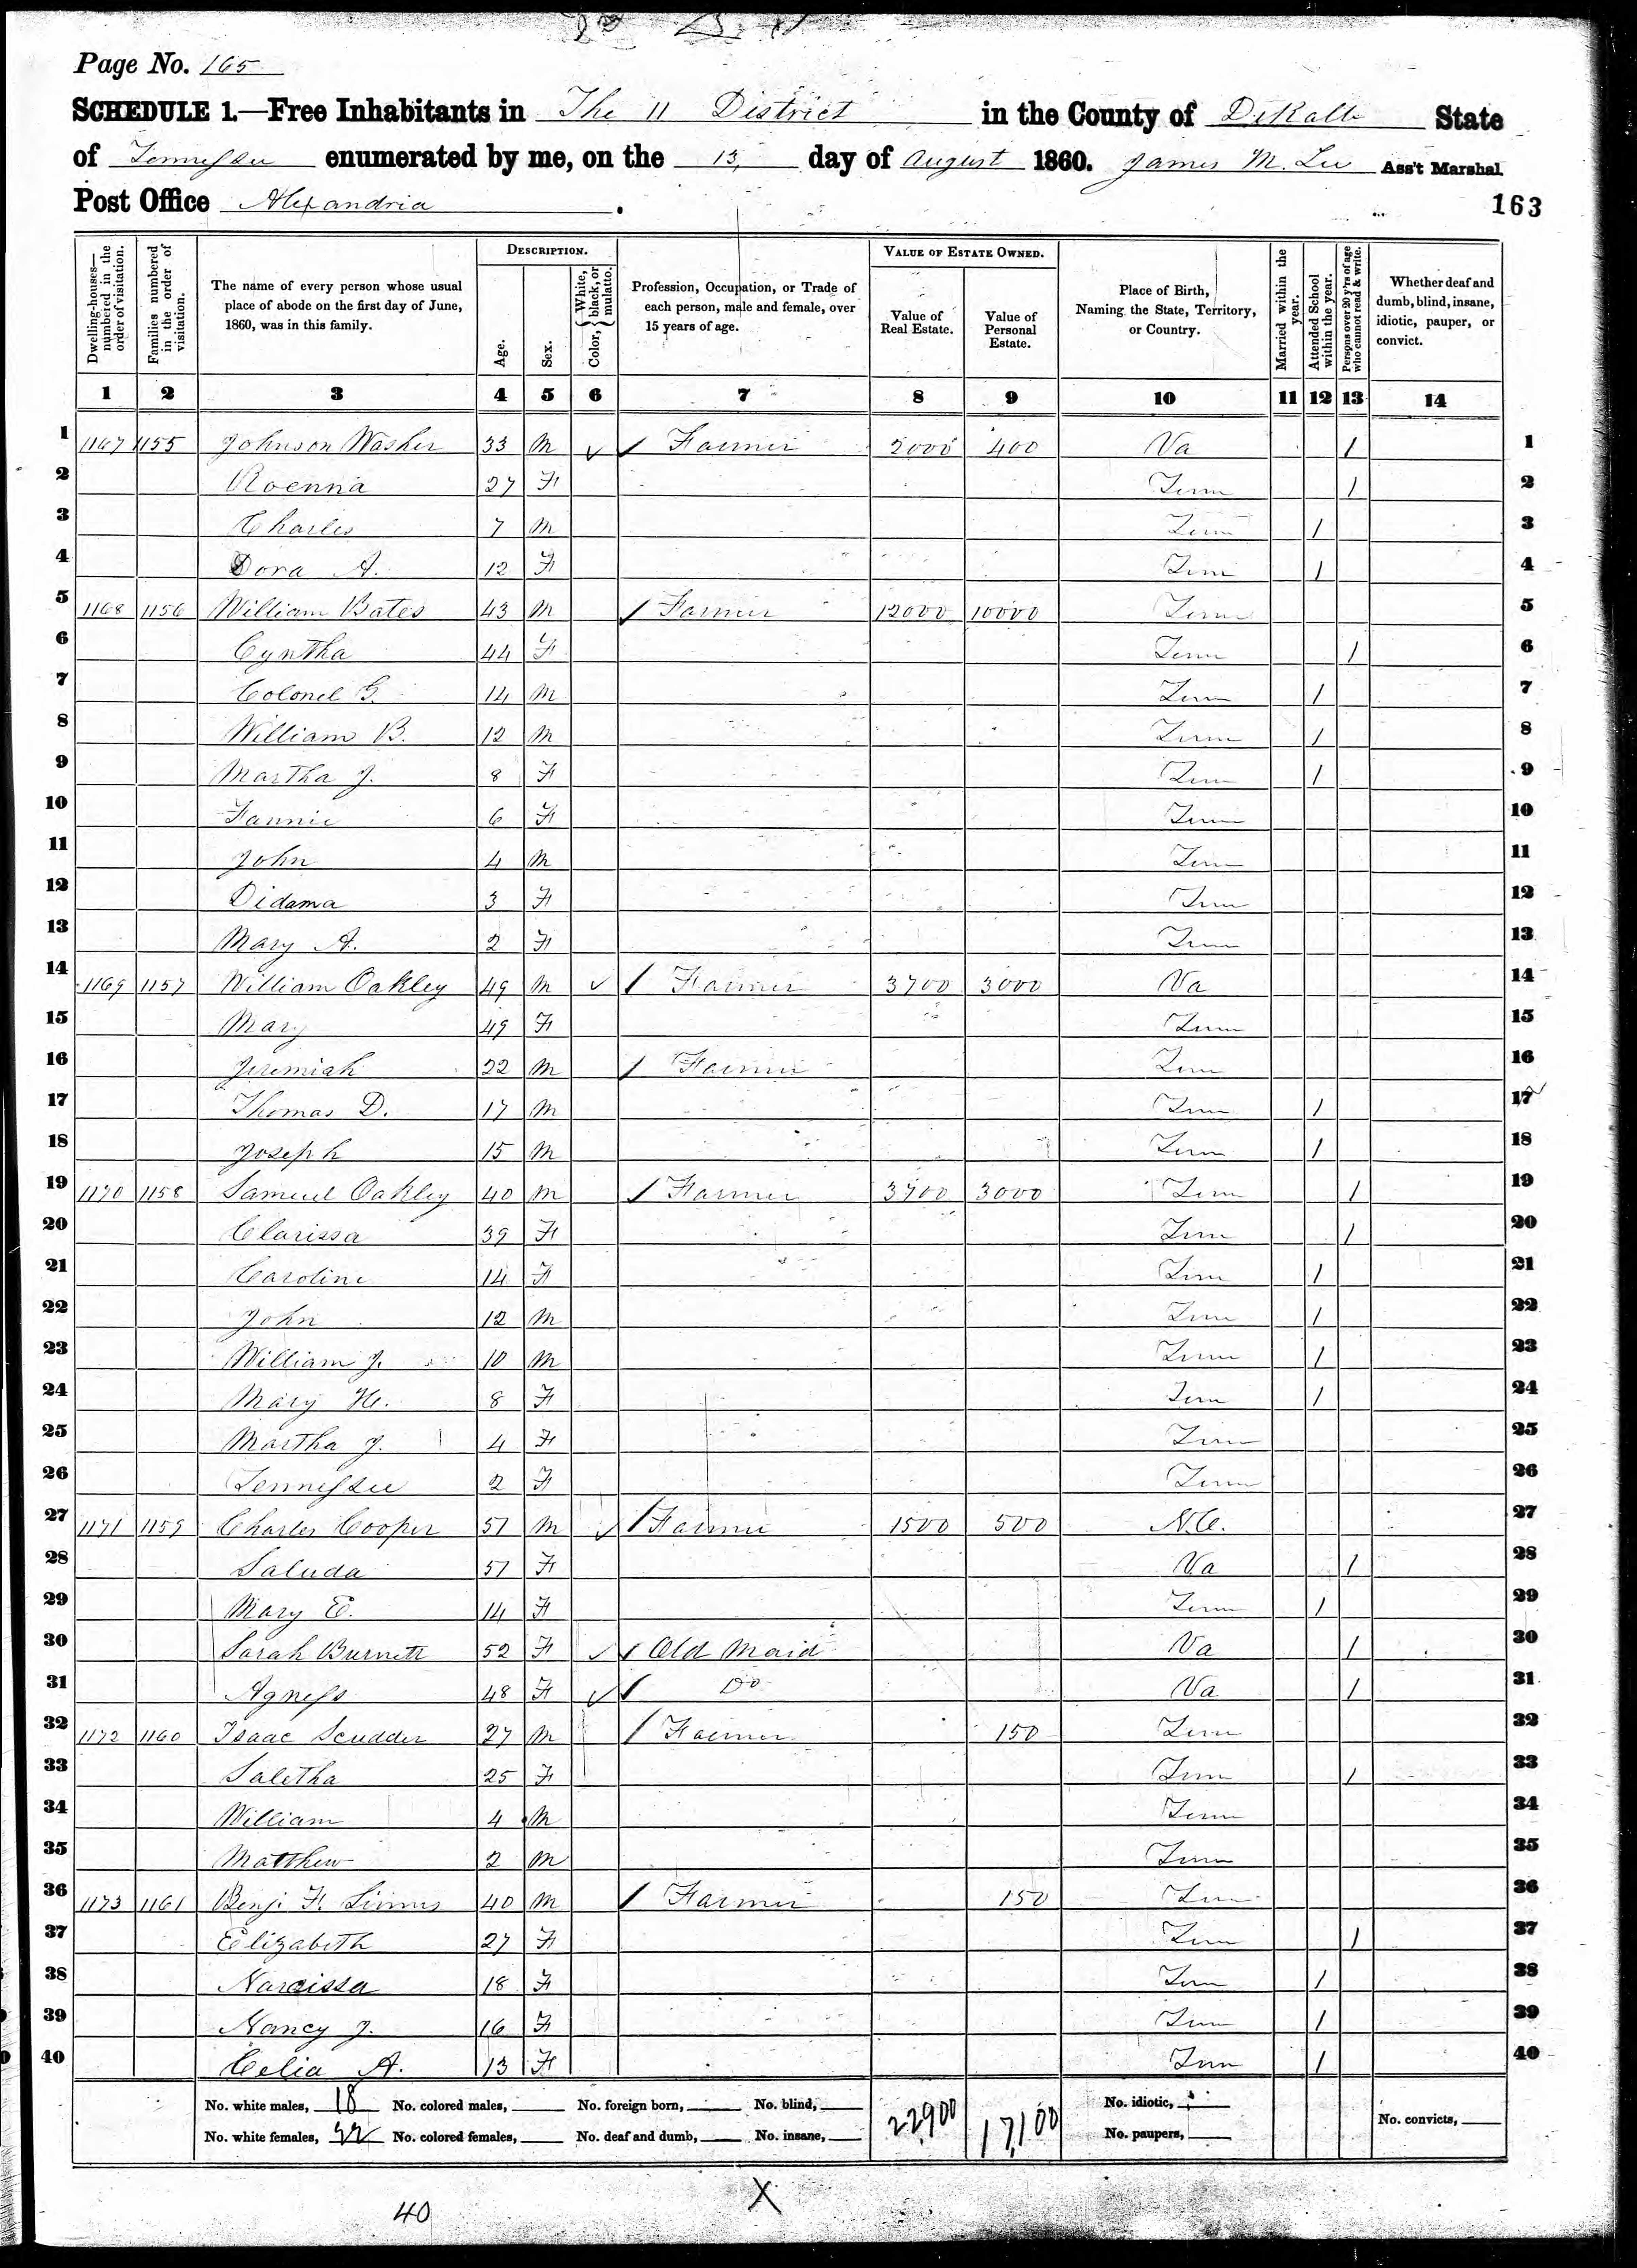 Page No. 165
SCHEDULE 1.—Free Inhabitants in The 11 District in the County of DeKalb State
of Tennessee enumerated by me, on the 13, day of August 1860. James M. Lee Ass't Marshal.
Post Office Alexandria.
163
Dwelling-houses—numbered in the order of visitation. Families numbered in the order of visitation. The name of every person whose usual place of abode on the first day of June, 1860, was in this family. DESCRIPTION. Age. Sex. Color, { White, black, or mulatto. Profession, Occupation, or Trade of each person, male and female, over 15 years of age. VALUE OF ESTATE OWNED. Value of Real Estate. Value of Personal Estate. Place of Birth, Naming the State, Territory, or Country. Married within the year. Attended School within the year. Persons over 20 y'rs of age who cannot read & write. Whether deaf and dumb, blind, insane, idiotic, pauper, or convict.
1 2 3 4 5 6 7 8 9 10 11 12 13 14
1 1167 1155 Johnson Washer 33 M Farmer 2000 400 Va / 1
2 Roenna 27 F Tenn / 2
3 Charles 7 M Tenn / 3
4 Dora A. 12 F Tenn / 4
5 1168 1156 William Bates 43 M Farmer 12000 10000 Tenn 5
6 Cyntha 44 F Tenn / 6
7 Colonel G. 14 M Tenn / 7
8 William B. 12 M Tenn / 8
9 Martha J. 8 F Tenn / 9
10 Fannie 6 F Tenn 10
11 John 4 M Tenn 11
12 Didama 3 F Tenn 12
13 Mary A. 2 F Tenn 13
14 1169 1157 William Oakley 49 M Farmer 3700 3000 Va 14
15 Mary 49 F Tenn 15
16 Jeremiah 22 M Farmer Tenn 16
17 Thomas D. 17 M Tenn / 17
18 Joseph 15 M Tenn / 18
19 1170 1158 Samuel Oakley 40 M Farmer 3700 3000 Tenn / 19
20 Clarissa 39 F Tenn / 20
21 Caroline 14 F Tenn / 21
22 John 12 M Tenn / 22
23 William J. 10 M Tenn / 23
24 Mary H. 8 F Tenn / 24
25 Martha J. 4 F Tenn 25
26 Tennessee 2 F Tenn 26
27 1171 1159 Charles Cooper 51 M Farmer 1500 500 N.C. 27
28 Saluda 51 F Va / 28
29 Mary E. 14 F Tenn / 29
30 Sarah Burnett 52 F Old Maid Va / 30
31 Agness 48 F Do Va / 31
32 1172 1160 Isaac Scudder 27 M Farmer 150 Tenn 32
33 Saletha 25 F Tenn / 33
34 William 4 M Tenn 34
35 Matthew 2 M Tenn 35
36 1173 1161 Benj. F. 40 M Farmer 150 Tenn 36
37 Elizabeth 27 F Tenn / 37
38 Narcissa 18 F Tenn / 38
39 Nancy J. 16 F Tenn / 39
40 Celia A. 13 F Tenn / 40
No. white males, 18 No. colored males, No. foreign born, No. blind, 22900 17,100 No. idiotic, No. convicts,
No. white females, 22 No. colored females, No. deaf and dumb, No. insane, No. paupers,
40 X